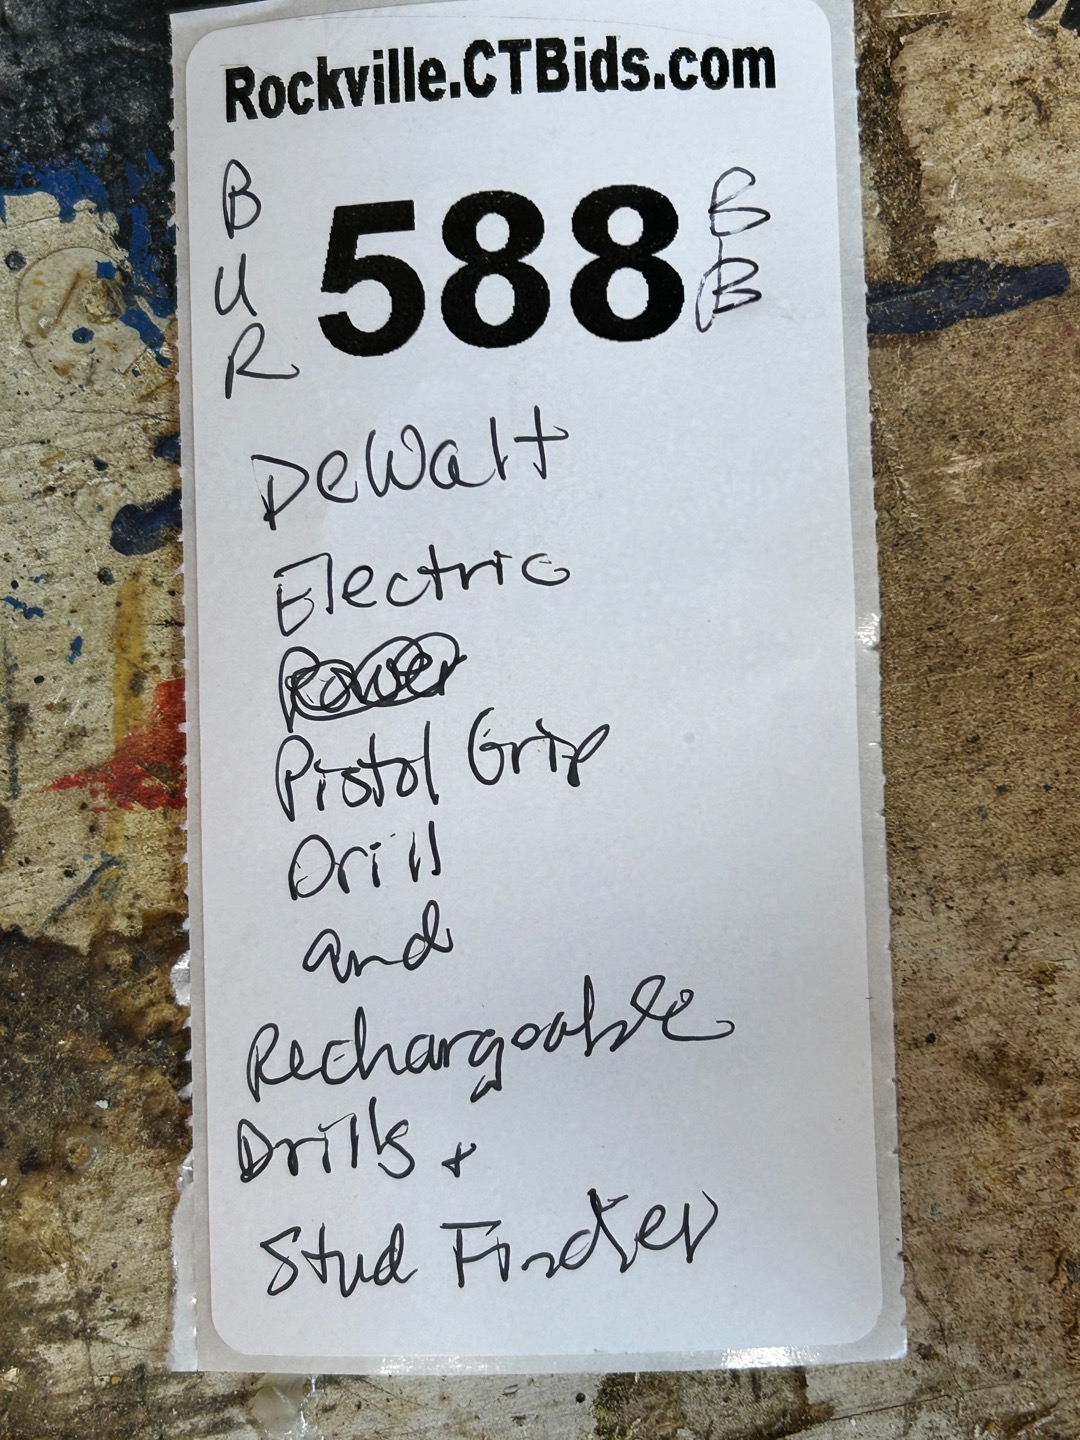 Rockville.CTBids.com
B
U
R
588
B
B
DeWalt
Electric
Pistol Grip
Drill
and
Rechargeable
Drills +
Stud Finder